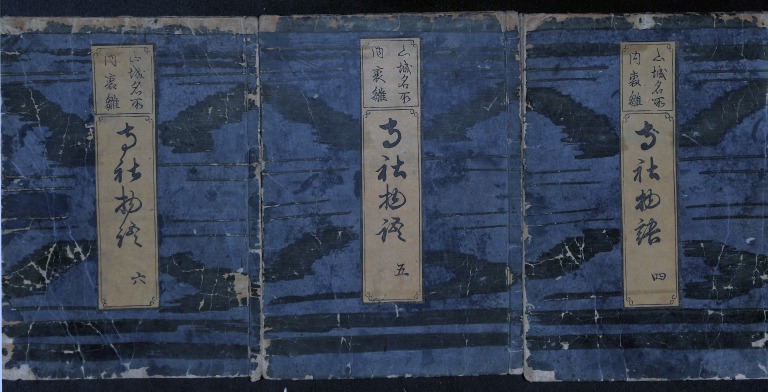 山城名所
内裏雛
寺社物語
四
山城名所
内裏雛
寺社物語
五
山城名所
内裏雛
寺社物語
六